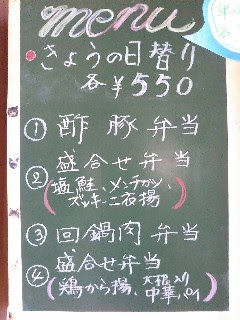 menu
きょうの日替り
各¥550
① 酢豚弁当
② 盛合せ弁当
(塩鮭、メンチカツ、
ズッキーニ衣揚)
③ 回鍋肉弁当
④ 盛合せ弁当
(鶏から揚、大根入り
中華、